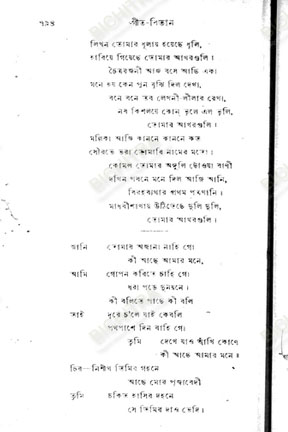 ৭৯৪
গীত-বিতান
লিখন তোমার ধুলায় হয়েছে ধূলি,
হারিয়ে গিয়েছে তোমার আখরগুলি।
চৈত্ররজনী আজ বসে আছি একা
মনে হয় কেন পুন বুঝি দিল দেখা,
বনে বনে তব লেখনী লীলার রেখা,
নব কিশলয়ে কোন্ ভুলে এল ভুলি,
তোমার আখরগুলি।
মল্লিকা আজি কাননে কাননে কত
সৌরভে ভরা তোমারি নামের মতো।
কোমল তোমার অঙ্গুলি ছোঁওয়া বাণী
দখিন পবনে মনে দিল আজি আনি,
বিরহব্যথার প্রথম পত্রখানি।
মাধবীশাখায় উঠিতেছে দুলি দুলি,
তোমার আখরগুলি।
জানি তোমার অজানা নাহি গো
কী আছে আমার মনে,
আমি গোপন করিতে চাহি গো
ধরা পড়ে দুনয়নে।
কী বলিতে পাছে কী বলি
তাই দূরে চ'লে যাই কেবলি
পথপাশে দিন বাহি গো
তুমি দেখে যাও আঁখি কোণে
কী আছে আমার মনে॥
চির-নিশীথ তিমির গহনে
আছে মোর পূজাবেদী
তুমি চকিত হাসির দহনে
সে তিমির দাও ভেদি।